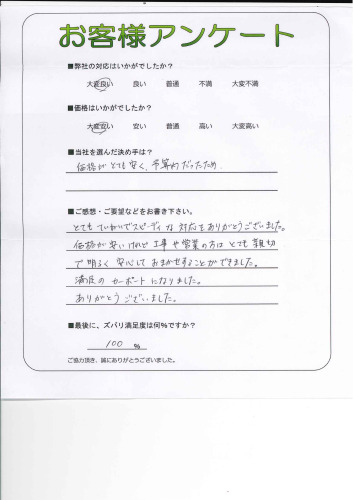 お客様アンケート
■弊社の対応はいかがでしたか？
大変良い 良い 普通 不満 大変不満
■価格はいかがでしたか？
大変安い 安い 普通 高い 大変高い
■当社を選んだ決め手は？
価格がとても安く、予算内だったため
■ご感想・ご要望などをお書き下さい。
とてもていねいでスピーディな対応をありがとうございました。
価格が安いけれど工事や営業の方はとても親切
で明るく安心しておまかせすることができました。
満足のカーポートになりました。
ありがとうございました。
■最後に、ズバリ満足度は何%ですか？
100 %
ご協力頂き、誠にありがとうございました。